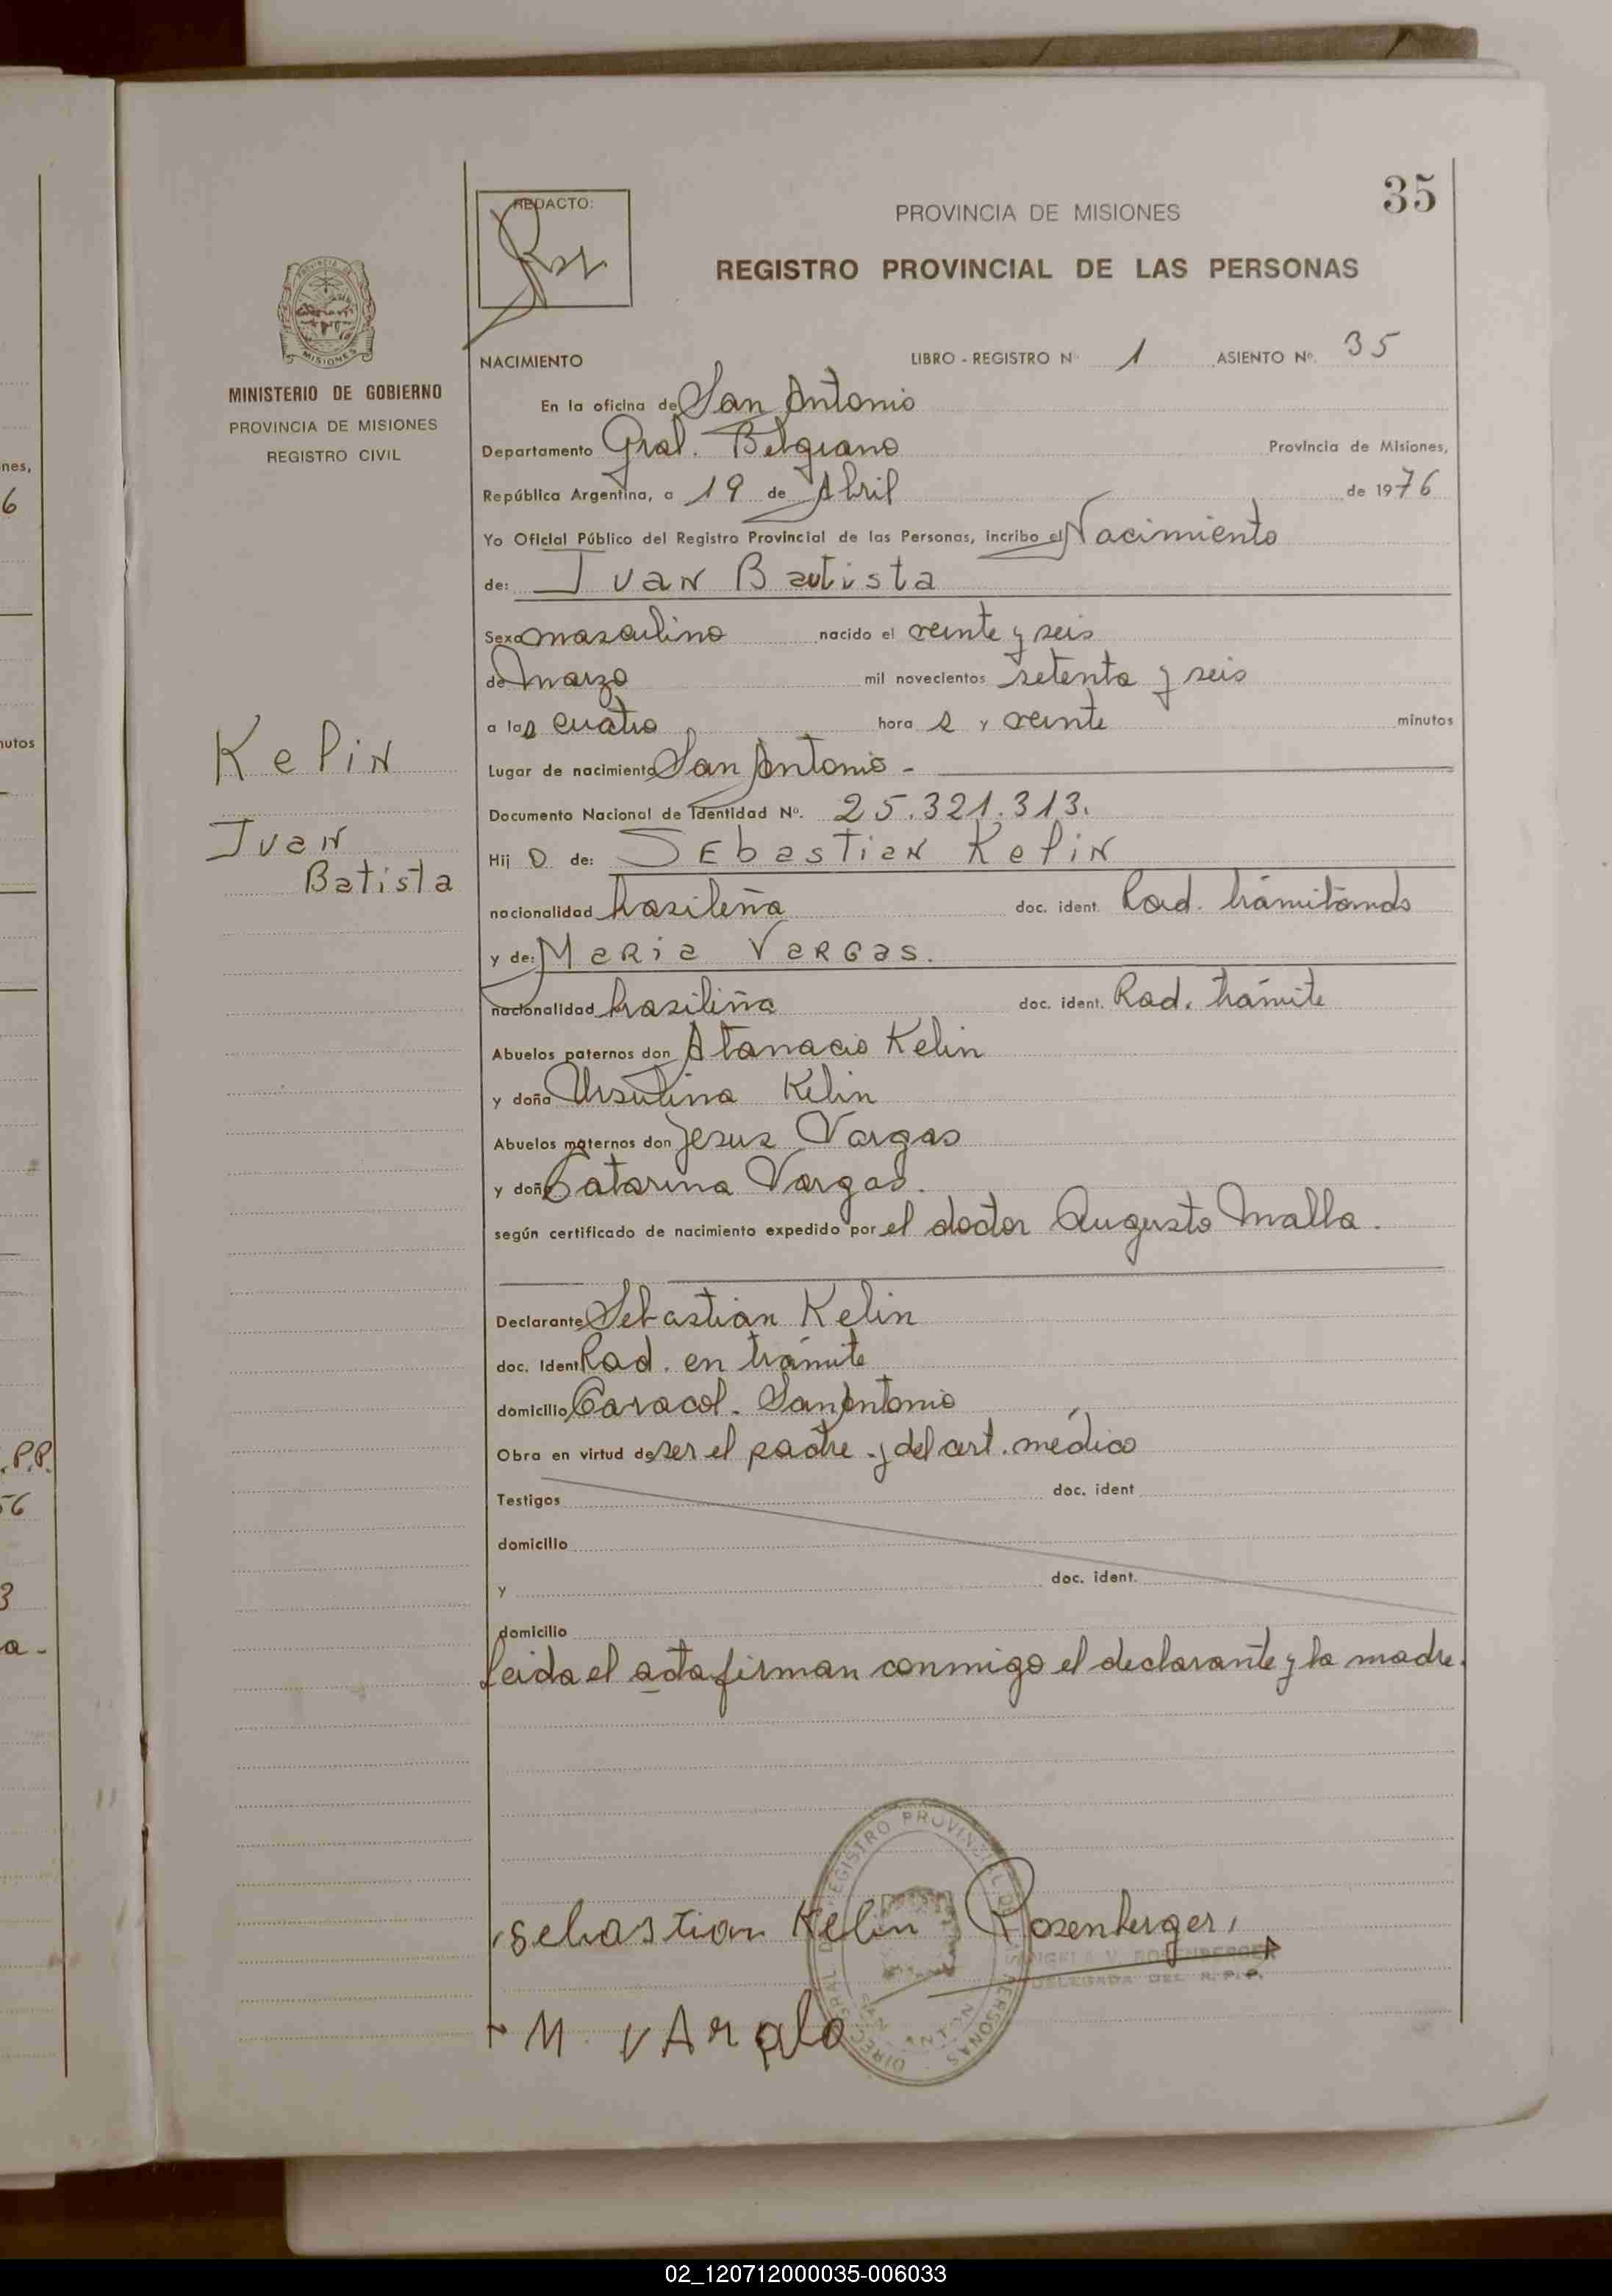 35
REDACTO:
PROVINCIA DE MISIONES
REGISTRO PROVINCIAL DE LAS PERSONAS
MISIONES
MINISTERIO DE GOBIERNO
PROVINCIA DE MISIONES
REGISTRO CIVIL
Kelin
Ivan
Batista
NACIMIENTO LIBRO - REGISTRO Nº 1 ASIENTO Nº. 35
En la oficina de San Antonio
Departamento Gral. Belgrano Provincia de Misiones,
República Argentina, a 19 de Abril de 1976
Yo Oficial Público del Registro Provincial de las Personas, incribo el Nacimiento
de: Ivan Bautista
Sexo masculino nacido el veinte y seis
de Marzo mil novecientos setenta y seis
a las cuatro hora s y veinte minutos
Lugar de nacimiento San Antonio -
Documento Nacional de Identidad Nº. 25.321.313.
Hij o de: Sebastian Kelin
nacionalidad brasileña doc. ident. Rad. trámitando
y de: Maria Vargas.
nacionalidad brasileña doc. ident. Rad. trámite
Abuelos paternos don Atanacio Kelin
y doña Ursulina Kelin
Abuelos maternos don Jesus Vargas
y doña Catarina Vargas.
según certificado de nacimiento expedido por el doctor Augusto Malla.
Declarante Sebastian Kelin
doc. Ident Rad. en trámite
domicilio Caracol. San Antonio
Obra en virtud de ser el padre y del cert. médico
Testigos doc. ident
domicilio
y doc. ident.
domicilio
Leida el acta firman conmigo el declarante y la madre.
sebastian Kelin Rosenberger
ANGELA V. ROSENBERGER
DELEGADA DEL R.P.P.
M. VArgas
nes,
6
nutos
P.P.
56
3
a-
02_120712000035-006033